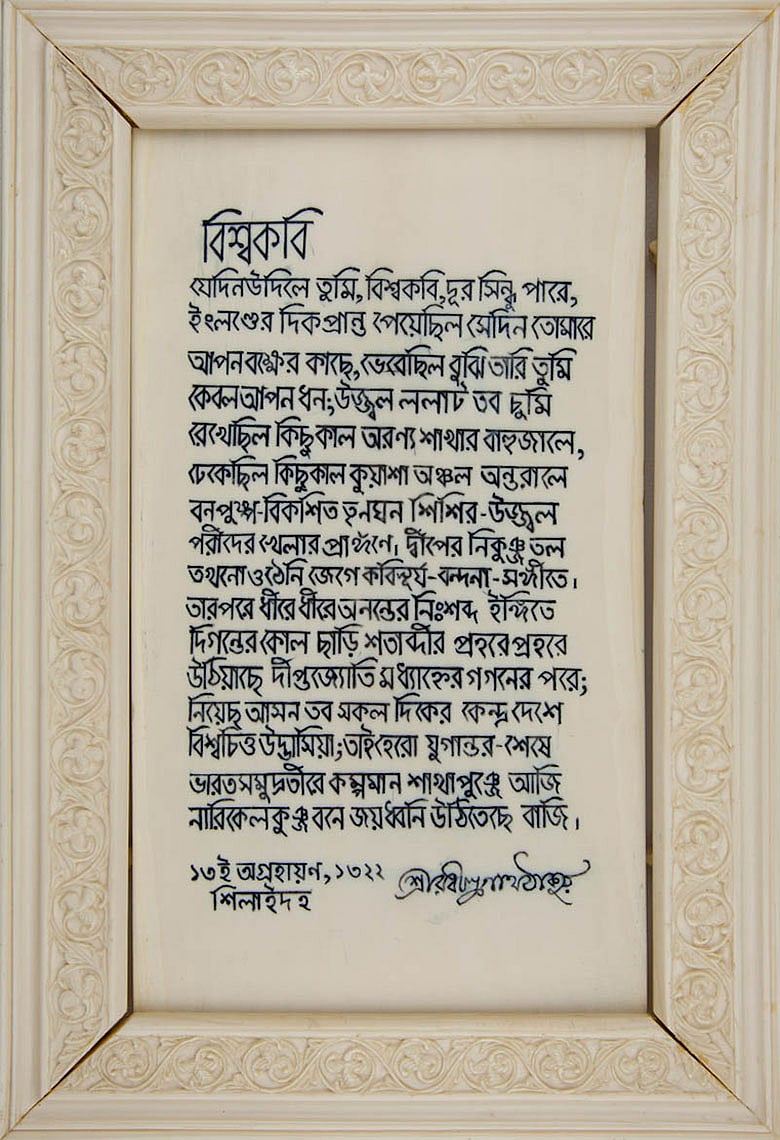 বিশ্বকবি
যেদিন উদিলে তুমি, বিশ্বকবি, দূর সিন্ধু পারে,
ইংলণ্ডের দিকপ্রান্ত পেয়েছিল সেদিন তোমারে
আপন বক্ষের কাছে, ভেবেছিল বুঝি তারি তুমি
কেবল আপন ধন; উজ্জ্বল ললাট তব চুমি
রেখেছিল কিছুকাল অরণ্য শাখার বাহুজালে,
ঢেকেছিল কিছুকাল কুয়াশা অঞ্চল অন্তরালে
বনপুষ্প-বিকশিত তৃনঘন শিশির-উজ্জ্বল
পরীদের খেলার প্রাঙ্গণে। দ্বীপের নিকুঞ্জ তল
তখনো ওঠেনি জেগে কবিসূর্য-বন্দনা-সঙ্গীতে।
তারপরে ধীরে ধীরে অনন্তের নিঃশব্দ ইঙ্গিতে
দিগন্তের কোল ছাড়ি শতাব্দীর প্রহরে প্রহরে
উঠিয়াছে দীপ্তজ্যোতি মধ্যাহ্নের গগনের পরে;
নিয়েছ আসন তব সকল দিকের কেন্দ্র দেশে
বিশ্বচিত্ত উদ্ভাসিয়া; তাই হেরো যুগান্তর-শেষে
ভারতসমুদ্রতীরে কম্পমান শাখাপুঞ্জে আজি
নারিকেল কুঞ্জ বনে জয়ধ্বনি উঠিতেছে বাজি।
১৩ই অগ্রহায়ণ, ১৩২২
শ্রীরবীন্দ্রনাথ ঠাকুর
শিলাইদহ